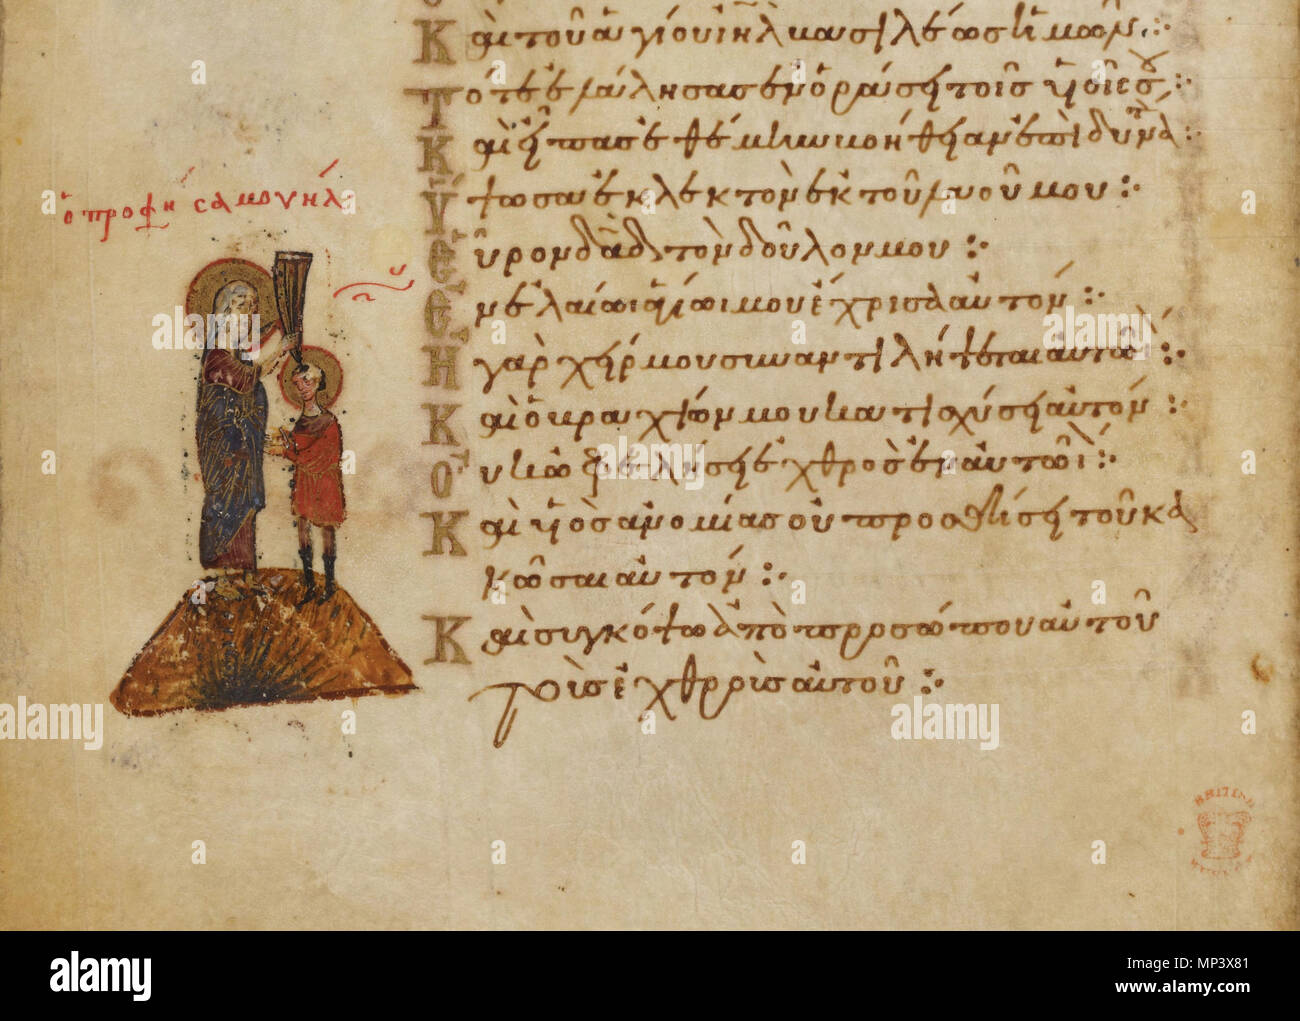 ὁ προφή σαμουήλ
Καὶ τοῦ ἁγίου ἰηλ βασιλέως ἡμῶν:
Τότε ἐλάλησας ἐν ὁράσει τοῖς υἱοῖς σου:
Καὶ εἶπας ἐθέμην βοήθειαν ἐπὶ δυνατὸν:
Ὕψωσα ἐκλεκτὸν ἐκ τοῦ λαοῦ μου:
Εὗρον δαδ τὸν δοῦλον μου:
Ἐν ἐλαίωι ἁγίωι μου ἔχρισα αὐτόν:
Ἡ γὰρ χείρ μου συναντιλήψεται αὐτῶ:
Καὶ ὁ βραχίων μου κατισχύσει αὐτόν:
Οὐκ ὠφελήσει ἐχθρὸς ἐν αὐτῶι:
Καὶ υἱὸς ἀνομίας οὐ προσθήσει τοῦ κα
κῶσαι αὐτόν:
Καὶ συγκόψω ἀπὸ προσώπου αὐτοῦ
τοὺς ἐχθροὺς αὐτοῦ:
alamy
Image ID: MP3X81
www.alamy.com